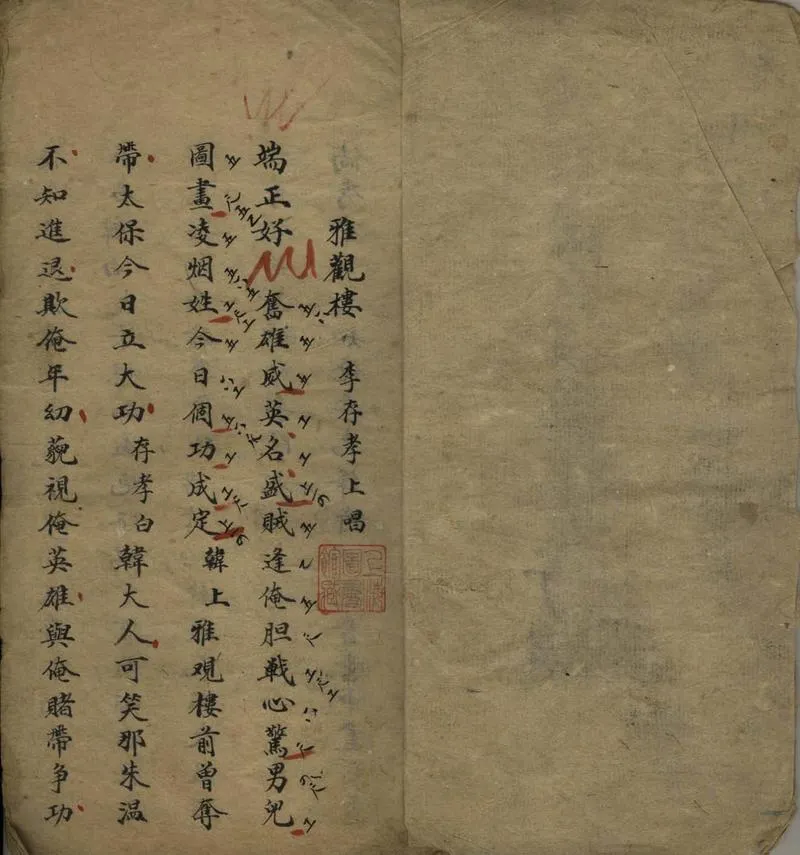 雅觀樓 李存孝上唱
端正好 奮雄威英名盛賊逢俺胆戰心驚男兒
圖畫凌烟姓今日個功成定 韓上 雅观樓前曾奪
帶太保今日立大功 存孝白 韓大人可笑那朱温
不知進退欺俺年幼藐視俺英雄與俺賭帶争功